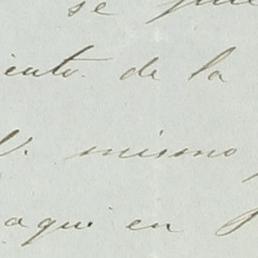 se
iento de la
V. mismo
aqui en